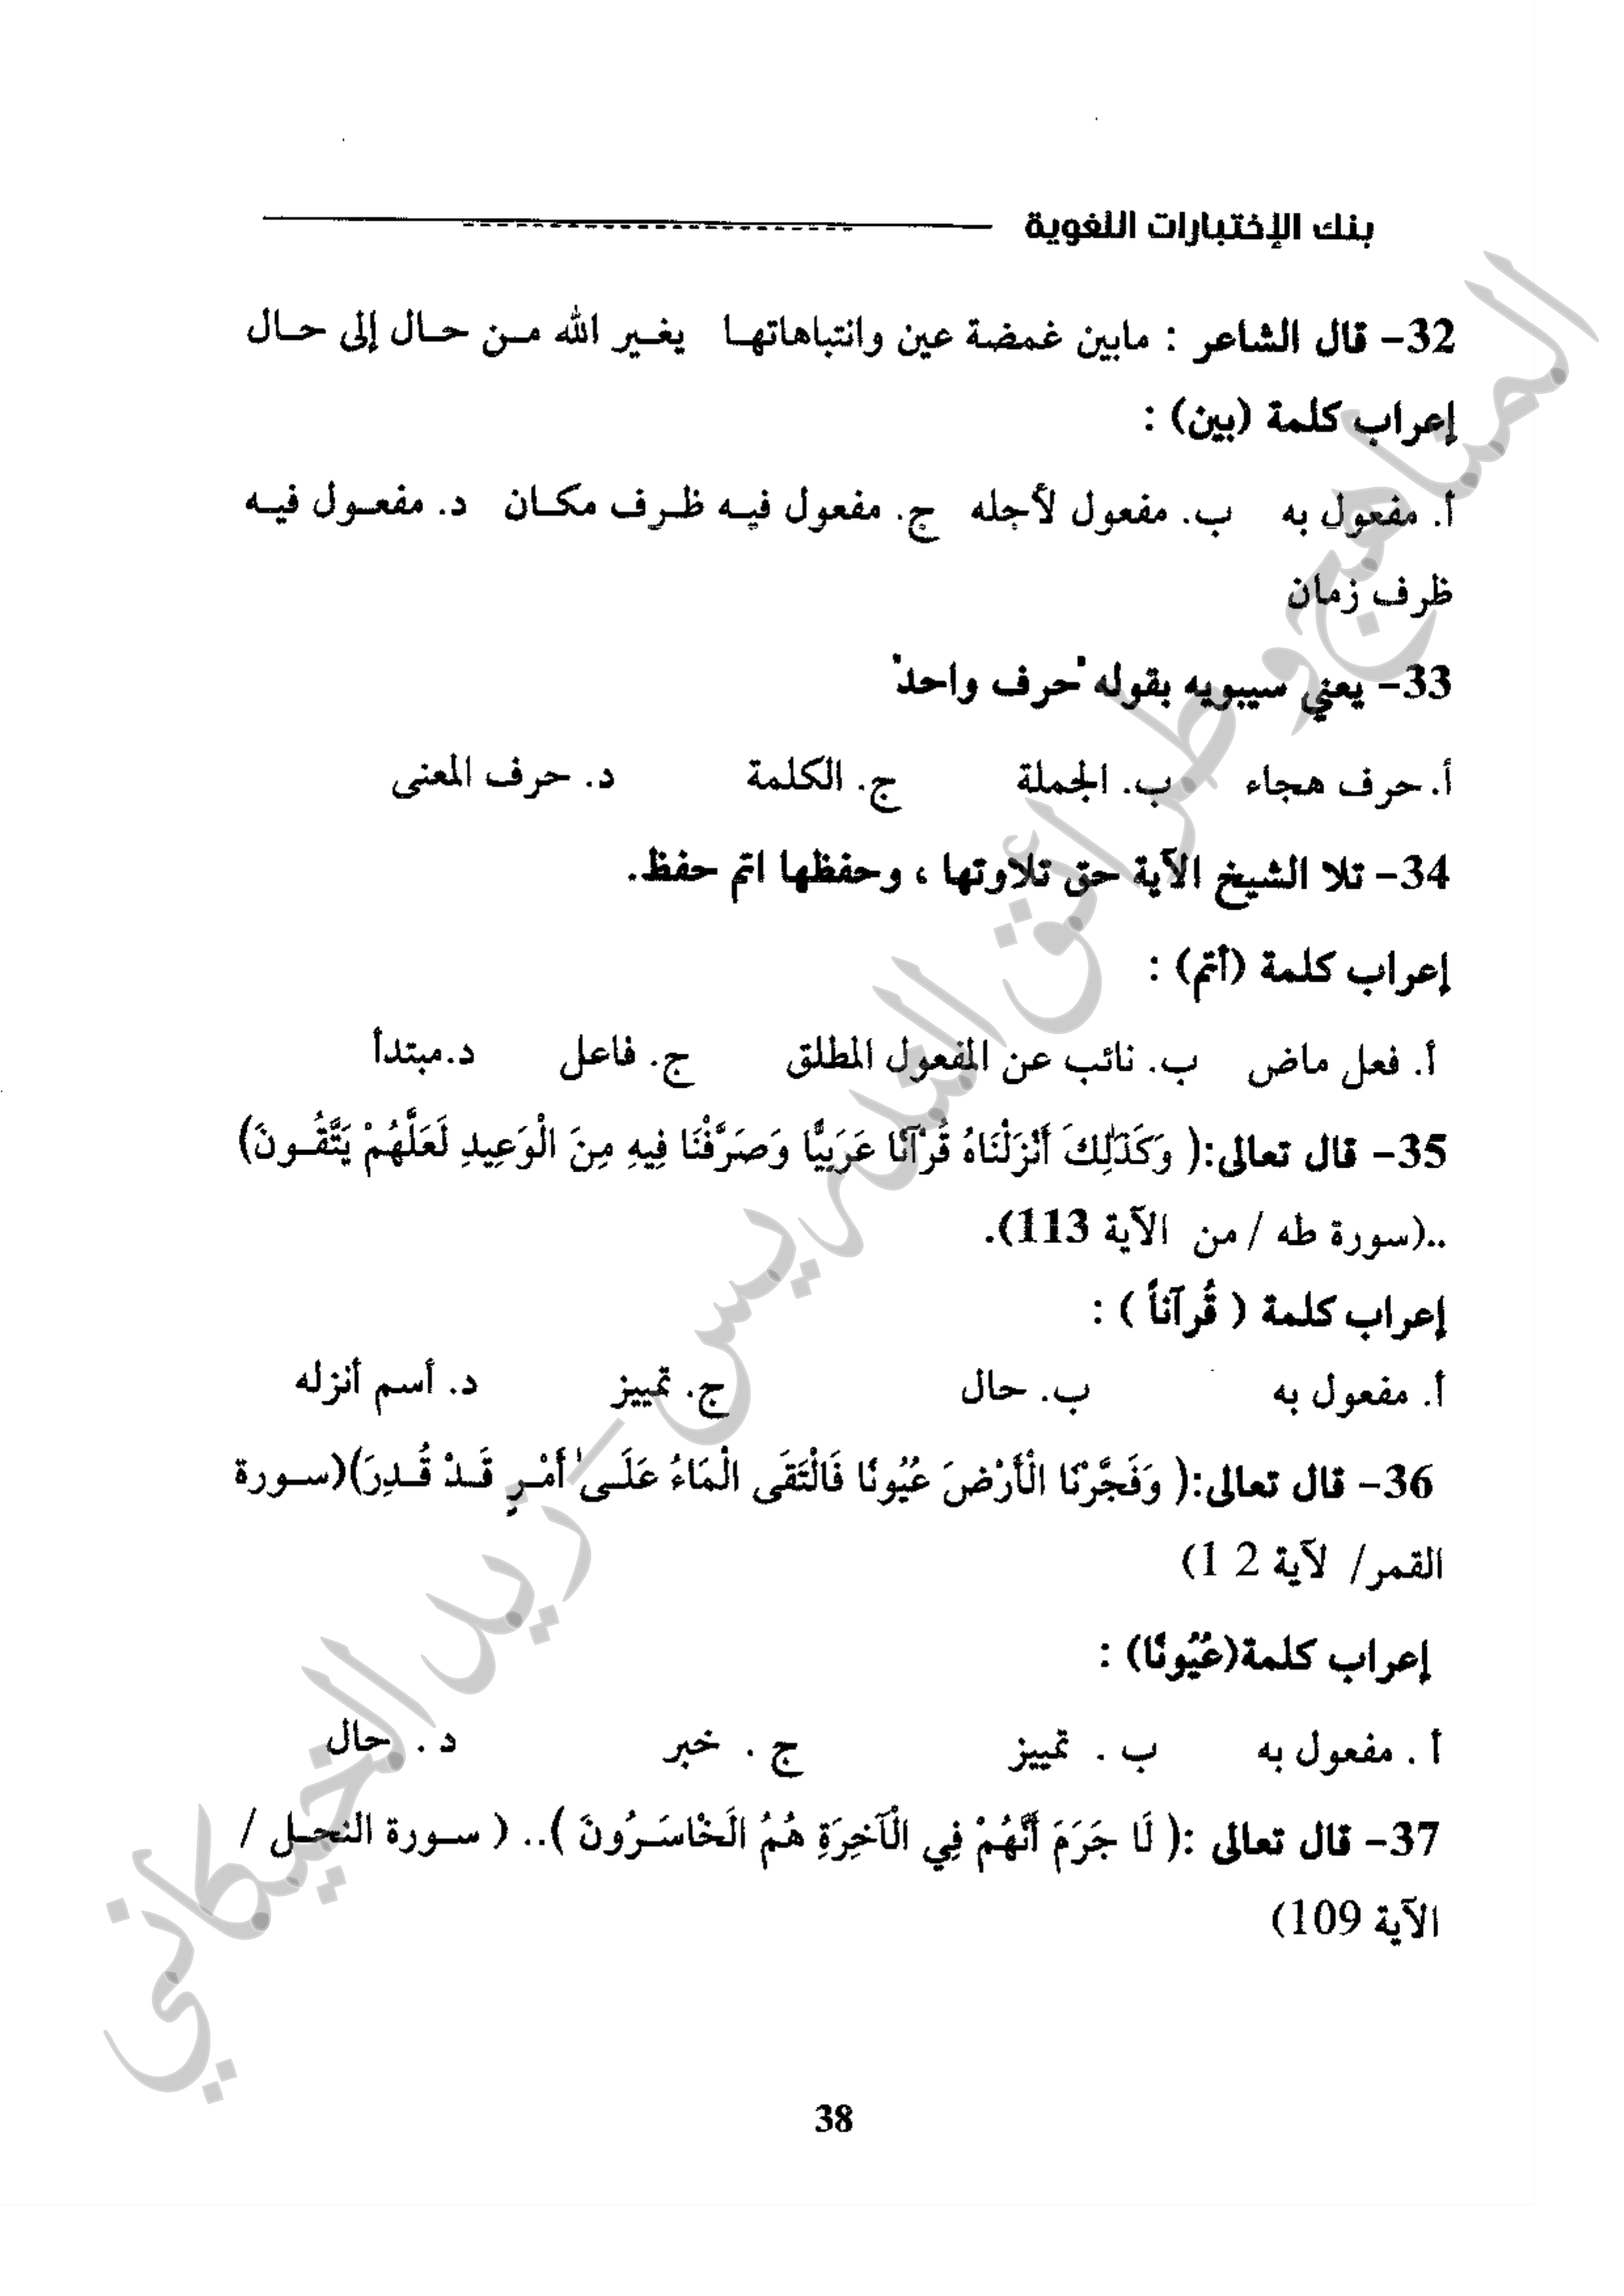 بنك الإختبارات اللغوية
32- قال الشاعر : مابين غمضة عين وانتباهاتهـا يغـير الله مـن حـال إلى حـال
إعراب كلمة (بين) :
أ. مفعول به ب. مفعول لأجله ج. مفعول فيـه ظـرف مكـان د. مفعـول فيـه
ظرف زمان
33- يعني سيبويه بقوله "حرف واحد"
أ. حرف هجاء ب. الجملة ج. الكلمة د. حرف المعنى
34- تلا الشيخ الآية حق تلاوتها ، وحفظها اتم حفظ.
إعراب كلمة (أتم) :
أ. فعل ماض ب. نائب عن المفعول المطلق ج. فاعل د.مبتدأ
35- قال تعالى:( وَكَذَٰلِكَ أَنْزَلْنَاهُ قُرْآنًا عَرَبِيًّا وَصَرَّفْنَا فِيهِ مِنَ الْوَعِيدِ لَعَلَّهُمْ يَتَّقُـونَ)
..(سورة طه / من الآية 113).
إعراب كلمة ( قُرآناً ) :
أ. مفعول به ب. حال ج. تمييز د. أسم أنزله
36- قال تعالى:( وَفَجَّرْنَا الْأَرْضَ عُيُونًا فَالْتَقَى الْمَاءُ عَلَـىٰ أَمْـرٍ قَـدْ قُـدِرَ)(سـورة
القمر/ لآية 2 1)
إعراب كلمة(عُيُونًا) :
أ . مفعول به ب . تمييز ج . خبر د . حال
37- قال تعالى :( لَا جَرَمَ أَنَّهُمْ فِي الْآخِرَةِ هُمُ الَخْاسَـرُونَ ).. ( سـورة النحـل /
الآية 109)
38
المناهج وطرائق التدريس - زيد الخيكاني